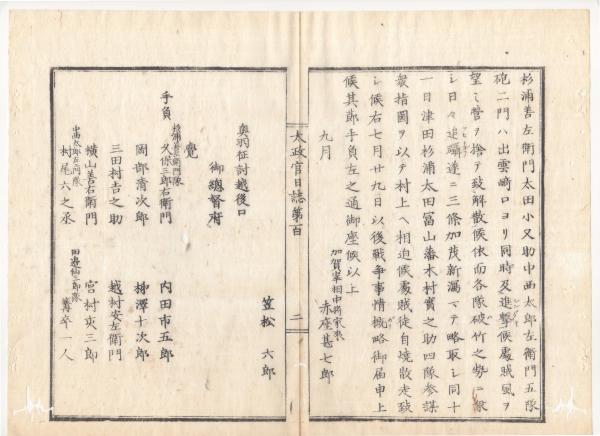 杉浦善左衛門太田小又助中西太郎左衛門五隊
砲二門ハ出雲崎口ヨリ同時及進撃候處賊風ヲ
望ミ營ヲ捨テ致解散候依而各隊破竹之勢ニ乘
シ日々追躡遂ニ三條加茂新潟マテ略取シ同十
一日津田杉浦太田冨山藩木村實之助四隊参謀
衆指圖ヲ以テ村上ヘ相迫候處賊徒自焼散走致
シ候右七月廿九日以後戦争事情概略御届申上
候其節手負左之通御座候以上
九月
加賀宰相中将家来
赤座甚七郎
太政官日誌第百
二
奥羽征討越後口
御總督府
笠松六郎
覺
手負
杦浦善左衛門隊
久保三郎右衛門
内田市五郎
岡部清次郎
柳澤十次郎
三田村吉之助
越村安左衛門
横山善右衛門
宮村夾三郎
村尾六之丞
田邉仙三郎隊
卒一人